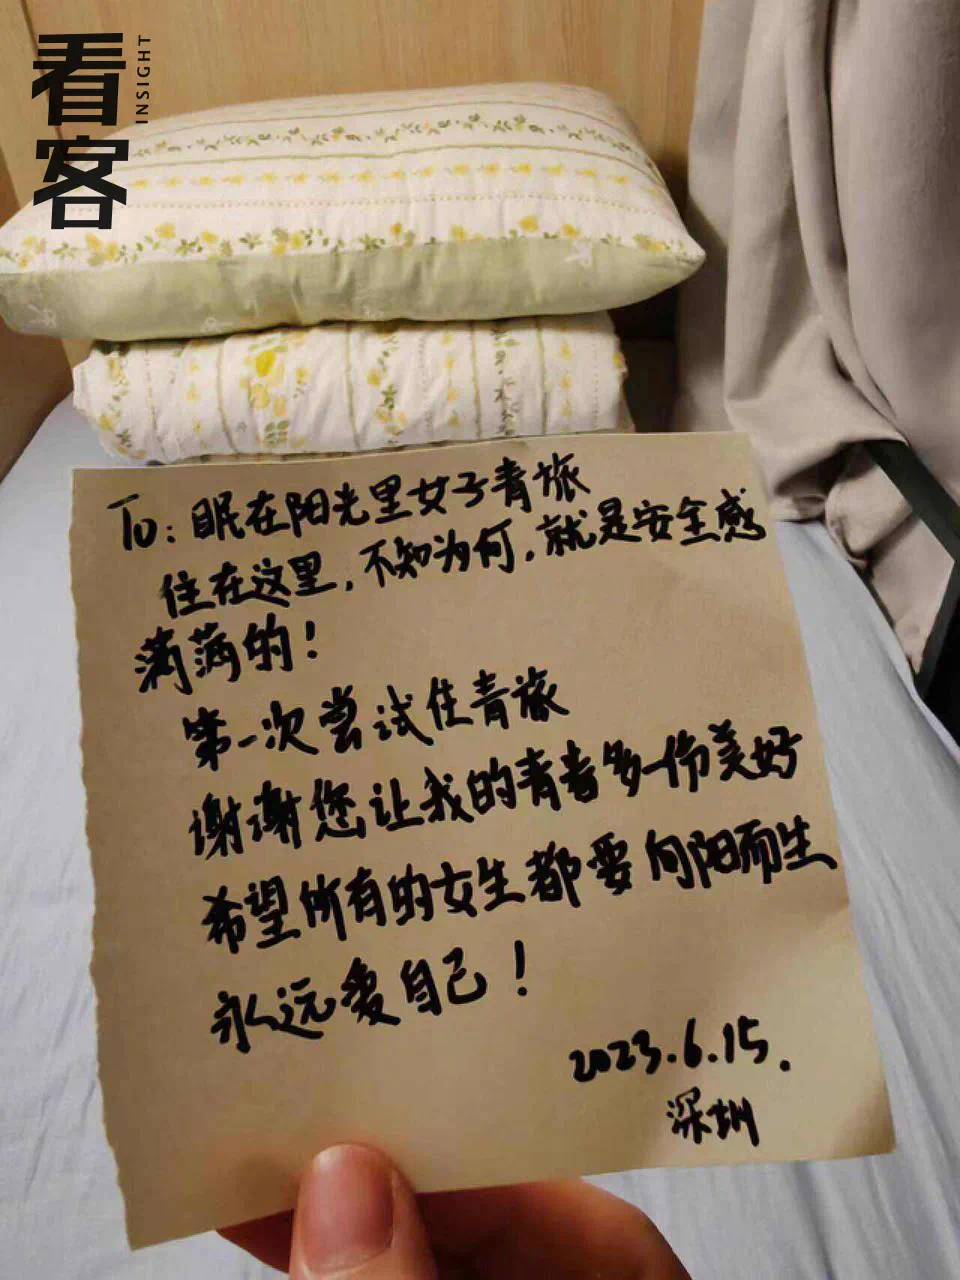 看客
INSIGHT
To：眠在阳光里女子青旅
住在这里，不知为何，就是安全感
满满的！
第一次尝试住青旅
谢谢您让我的青春多一份美好
希望所有的女生都要向阳而生
永远爱自己！
2023.6.15.
深圳